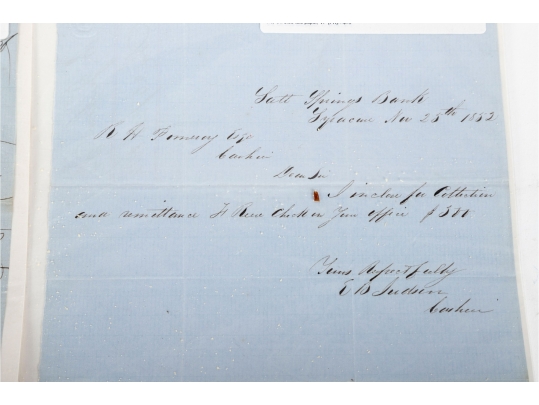 Salt Springs Bank
Syracuse Nov 25th 1852
R H Esqr
Cashier
Dear Sir
I inclose for Collection
and remittance H Reese Check on your office $500
Yours Respectfully
E B Judson
Cashier